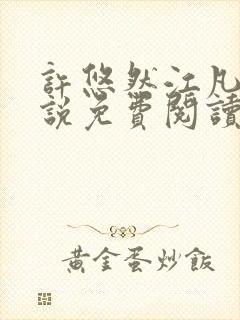 許悠然江凡
說免費閱讀
黃金蛋炒飯